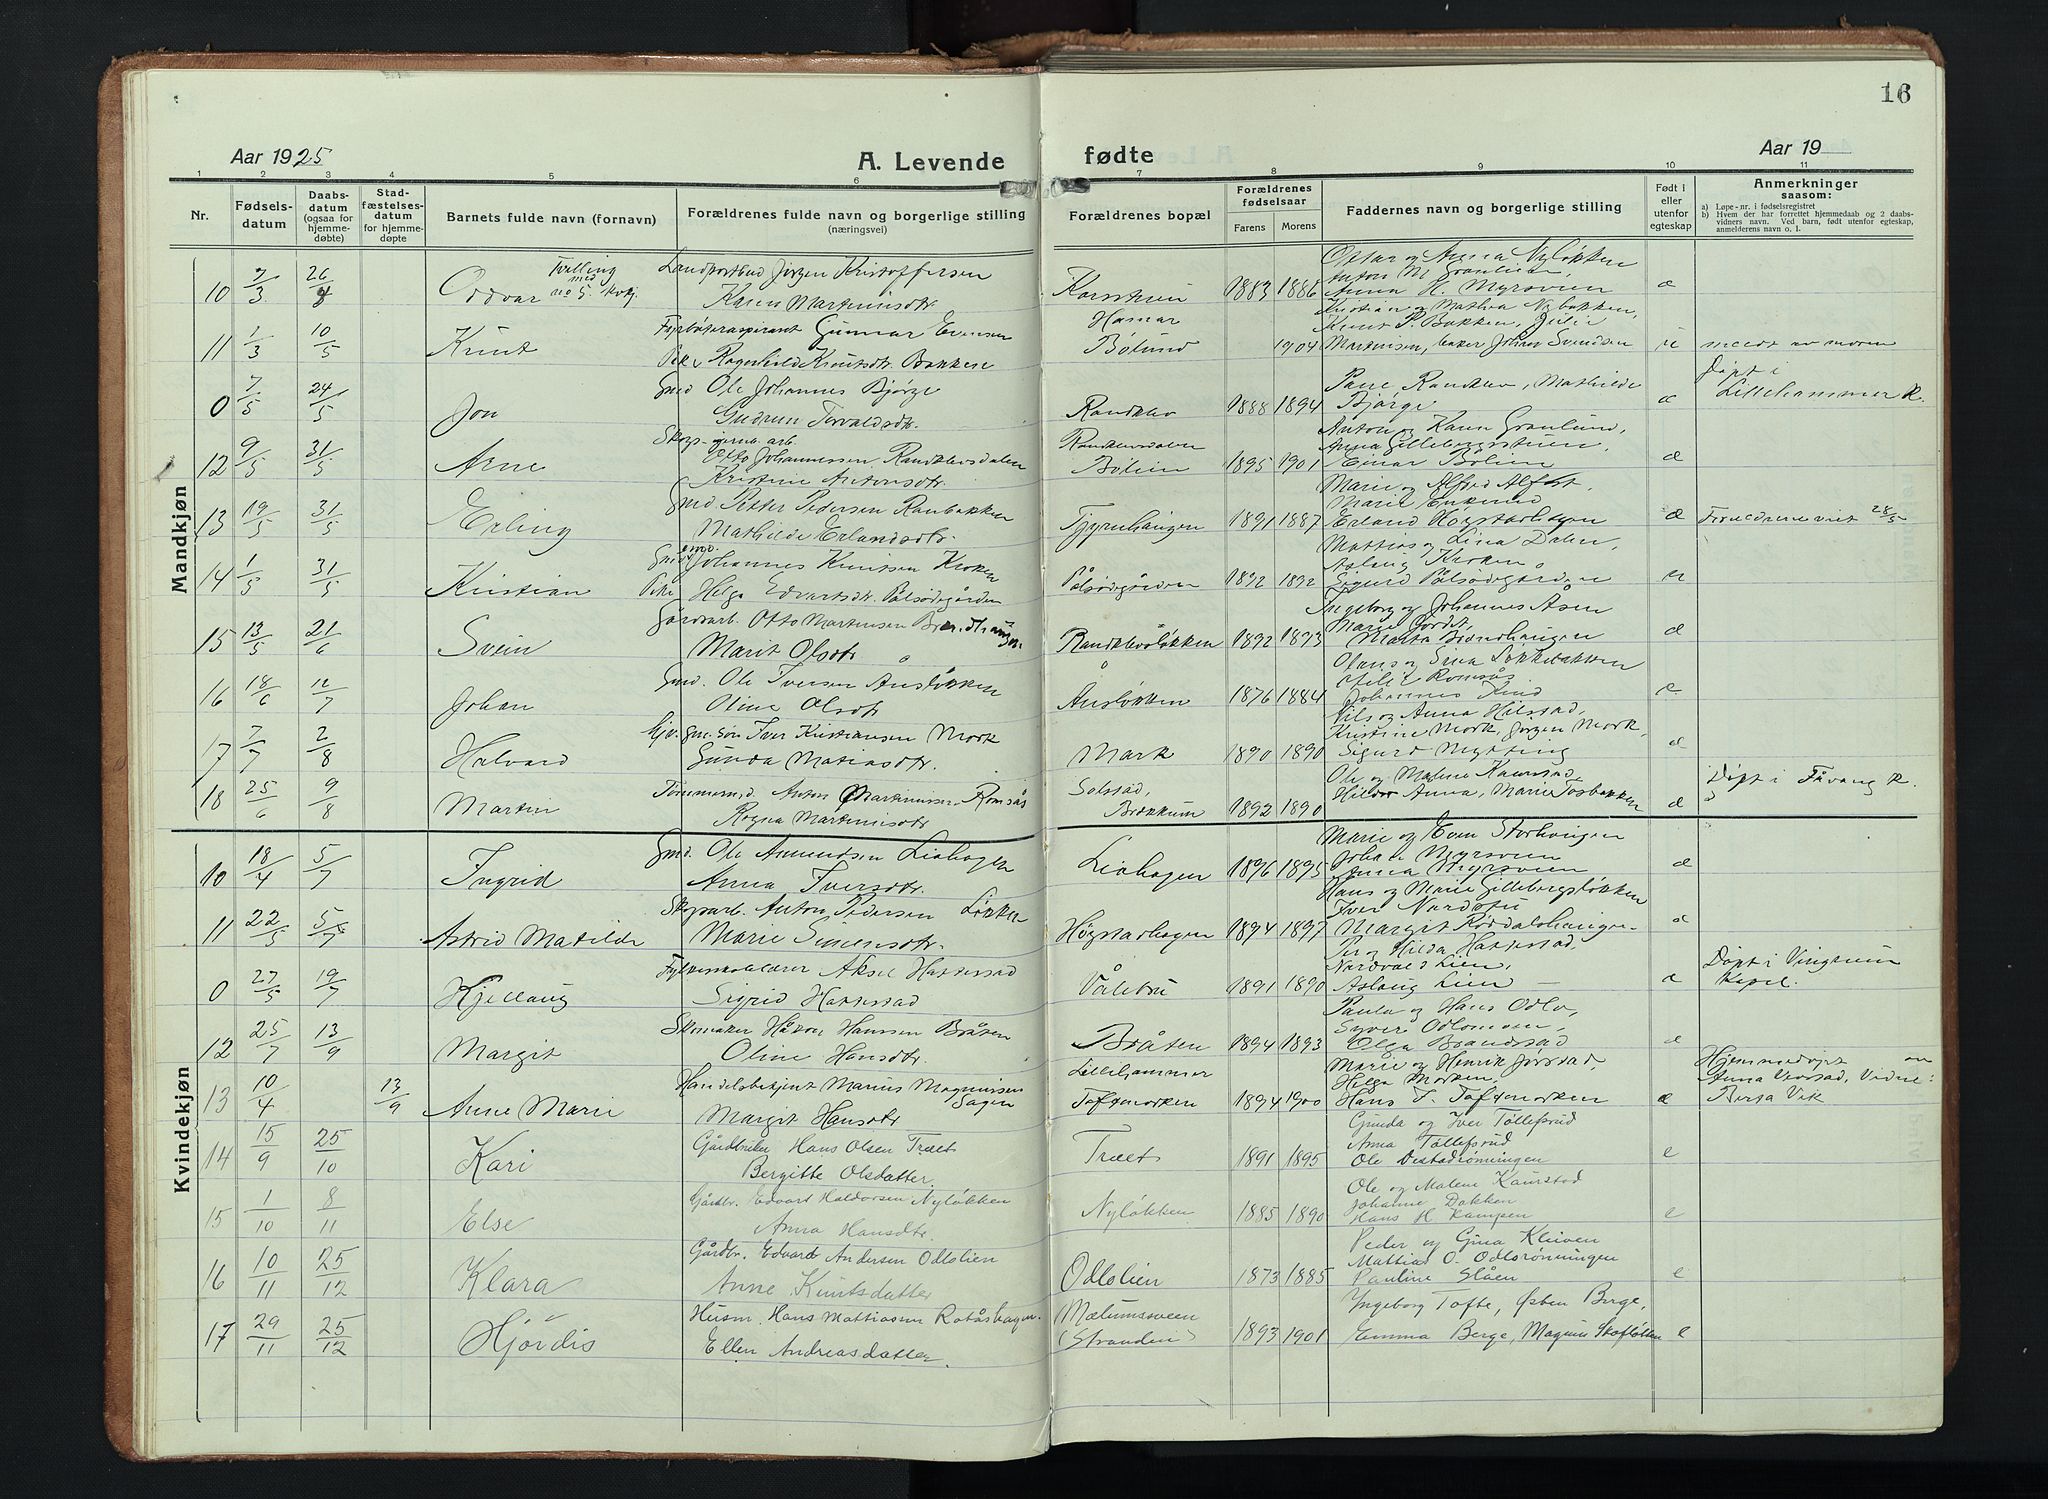 16
Aar 1925
A. Levende
fødte
Aar 19
1 2 3 4 5 6 7 8 9 10 11
Nr.
Fødsels-
datum
Daabs-
datum
(ogsaa for
hjemme-
døbte)
Stad-
fæstelses-
datum
for hjemme-
døpte
Barnets fulde navn (fornavn)
Forældrenes fulde navn og borgerlige stilling
(næringsvei)
Forældrenes bopæl
Forældrenes
fødselsaar
Farens Morens
Faddernes navn og borgerlige stilling
Født i
eller
utenfor
egteskap
Anmerkninger
saasom:
a) Løpe-nr. i fødselsregistret
b) Hvem der har forrettet hjemmedaab og 2 daabs-
vidners navn. Ved barn, født utenfor egteskap,
anmelderens navn o. l.
Mandkjøn
10 7/3 26/4 Oddvar Tvilling med no 5 kvkj. Landpostbud Jørgen Kristoffersen
Karen Martinusdtr. 1883 1886
Oskar og Anna Nyløkken
Anton M. Granlien,
Anna H. Myrsveen
Hamar
11 1/3 10/5 Knut Fyrbøteraspirant Gunnar Evensen
Pike Ragnhild Knutsdtr. Bakken Bølund 1904
Kristian og Mathea Nybakken,
Knut P. Bakken, Julie
Martinsen, baker Johan Svendsen u meldt av moren
0 7/5 24/5 Jon Gmd Ole Johannes Bjørge
Gudrun Torvaldsdtr. Randklev 1888 1894
Randklev, Mathilde
Bjørge e Døpt i
Lillehammer k.
12 9/5 31/5 Arne
Otto Johannessen Randklevsdalen
Kristine Antonsdtr. Randklevsdalen
Bølien 1895 1901
Anton og Karen Granlund,
Anna Gillebergstuen,
Einar Bølien e
13 19/5 31/5 Erling Gmd. Petter Pedersen Raubakken
Mathilde Erlandsdtr. Tjyrnhaugen 1891 1887
Marie og Alfred
Erland Høystadhagen e Foreldrene viet 28/5
14 1/5 31/5 Kristian Johannes Knutsen Kroken
Pike Helga Edvartsdtr. Pålsødegården Pålsødegården 1892 1892
Mattias og Lina Dalen,
Aslaug Kroken,
Sigurd Pålsødegården u
15 13/5 21/6 Svein Gårdarb. Otto Martinsen Brændhaugen
Marit Olsdtr. Randklevsløkken 1892 1893
Ingeborg og Johannes Åsen
Marie Jordet,
Marta Brændhaugen e
16 18/6 12/7 Johan Gmd. Ole Iversen Ånsløkken
Oline Olsdtr. Ånsløkken 1876 1884
Olaus og Lina Løkkebakken
Romsås
Johannes Lund e
17 7/7 2/8 Halvard Iver Kristiansen Mork
Gunda Matiasdtr. Mark 1890 1890
Nils og Anna Hilstad,
Kristine Mork, Jørgen Mork,
Sigurd Nytting e
18 25/6 9/8 Martin Tømmermd. Anton Martinusen Romsås
Ragna Martinusdtr. Solstad,
Brekkum 1892 1890
Ole og Malene Kaurstad
Anna, Marie Fosbakken e Døpt i Fåvang k.
Kvindekjøn
10 18/4 5/7 Ingrid Gmd. Ole Amundsen Liahagen
Anna Iversdtr. Liahagen 1896 1895
Marie og Even Storhaugen
Johan Myrsveen
Anna Myrsveen e
11 22/5 5/7 Astrid Matilde Skogarb. Anton Pedersen Løkken
Marie Simensdtr. Høystadhagen 1894 1897
Hans og Marie Gillebergsløkken
Iver Nordstu
Margit Røddalshaugen e
0 27/5 19/7 Hjellaug Fylkesskolelærer Aksel Hattestad
Sigrid Hattestad Vålebru 1891 1890
Per og Hilda Hattestad,
Nordvald Lien,
Aslaug Lien e Døpt i Vingrum
Kapel.
12 25/7 13/9 Margit Skomaker Håkon Hanssen Bråten
Oline Hansdtr. Bråten 1894 1893
Paula og Hans Odlo,
Syver Odlomoen,
Olga Brandstad e
13 10/4 13/9 Anne Marie Handelsbetjent Marius Magnussen
Sagen
Margit Hansdtr. Lillehammer
Toftemorken 1894 1900
Marie og Henrik Jørstad,
Helga Morken,
Hans T. Toftemorken e Hjemmedøpt av
Anna Verstad, Vidne:
Berta Vik
14 15/9 25/10 Kari Gårdbruker Hans Olsen Træet
Bergitte Olsdatter Træet 1891 1895
Gunda og Iver Tollefsrud
Anna Tollefsrud
Ole Destadrønningen e
15 1/10 8/11 Else Gårdbr. Edvart Haldorsen Nyløkken
Anna Hansdtr. Nyløkken 1885 1890
Ole og Malene Kaurstad
Johanne Dakken
Hans H. Kampen e
16 10/11 25/12 Klara Gårdbr. Edvard Andersen Odlolien
Anne Knutsdatter Odlolien 1873 1885
Peder og Gina Kleiven
Mattias O. Odlorønningen
Pauline Slåen e
17 29/11 25/12 Hjördis Husm. Hans Mattiasen Rolåshagen.
Ellen Andreasdatter. Mælumsveen
(Stranden) 1893 1901
Ingeborg Tofte, Øsben Berge,
Emma Berge, Magnus Skogløkken e